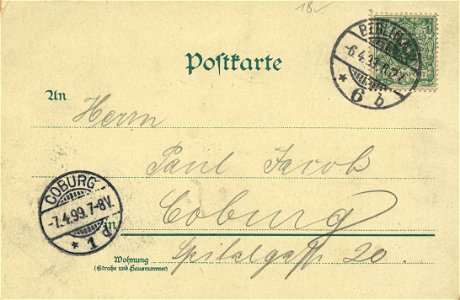 18
BERLIN
-6.4.99.
* 6 b
Postkarte
An
Herrn
Paul Jacob
COBURG
-7.4.99.7-8V.
* 1
in
Coburg
Wohnung
(Straße und Hausnummer)
Spitalgaß 20.